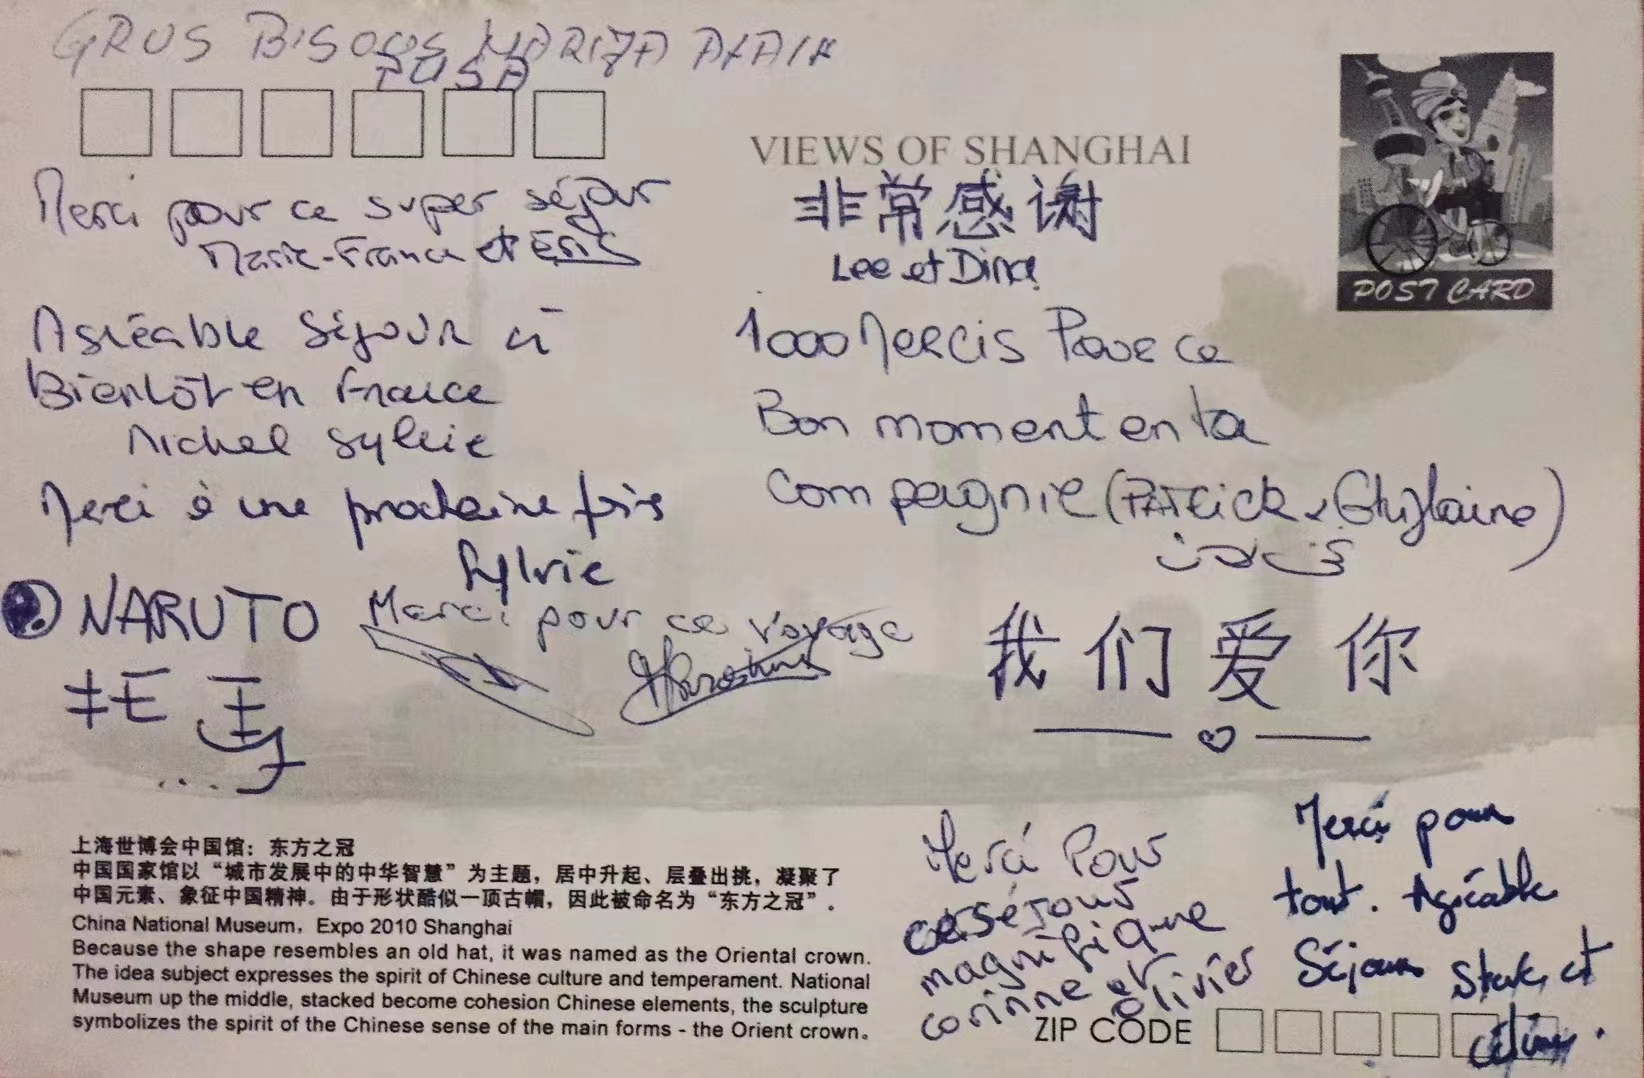 GROS BISOUS
VIEWS OF SHANGHAI
POST CARD
Merci pour ce super séjour
Marie-France et Éric
非常感谢
Lee et Dina
Agréable séjour à
Bientôt en France
Michel Sylvie
1000 Mercis Pour ce
Bon moment en ta
Compagnie (PATRick & Ghislaine)
Merci à une prochaine fois
Sylvie
NARUTO
Merci pour ce voyage
我们爱你
上海世博会中国馆：东方之冠
中国国家馆以“城市发展中的中华智慧”为主题，居中升起、层叠出挑，凝聚了
中国元素、象征中国精神。由于形状酷似一顶古帽，因此被命名为“东方之冠”.
China National Museum，Expo 2010 Shanghai
Because the shape resembles an old hat, it was named as the Oriental crown.
The idea subject expresses the spirit of Chinese culture and temperament. National
Museum up the middle, stacked become cohesion Chinese elements, the sculpture
symbolizes the spirit of the Chinese sense of the main forms - the Orient crown。
Merci Pour
magnifique
corinne et olivier
Merci pour
tout. Agréable
Séjour et
ZIP CODE